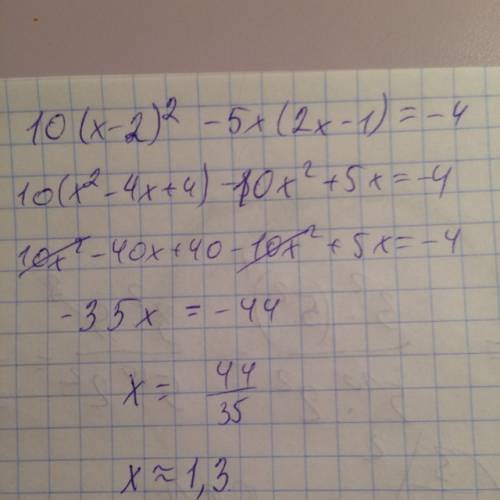 10(x-2)² -5x(2x-1)=-4
10(x²-4x+4)-10x²+5x=-4
10x²-40x+40-10x²+5x=-4
-35x = -44
x= 44/35
x≈1,3